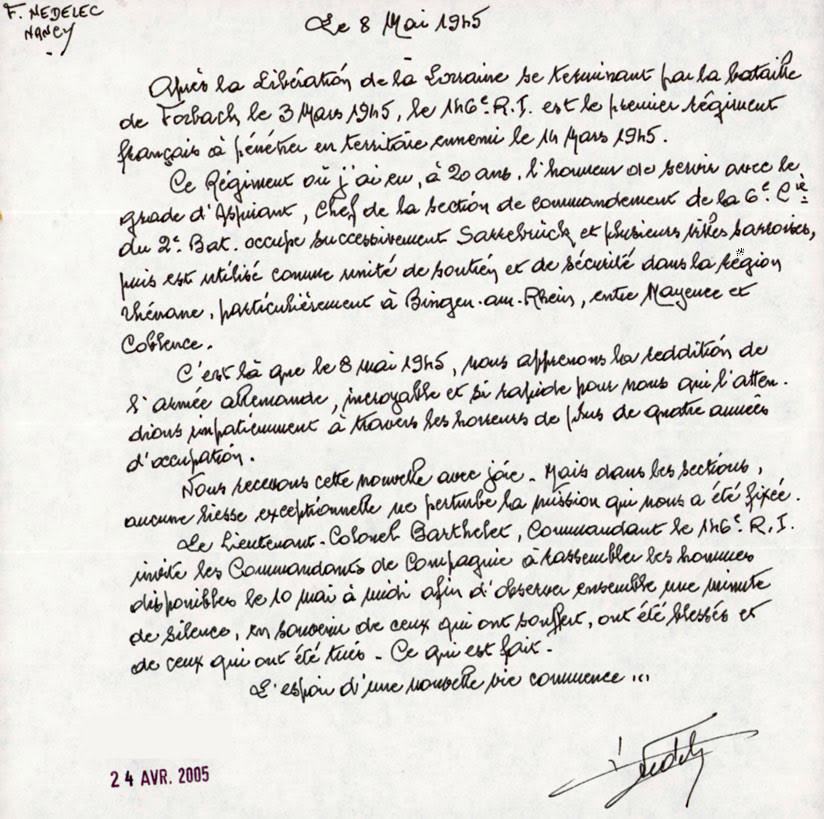 F. NEDELEC
NANCY
Le 8 Mai 1945
Après la Libération de la Lorraine se terminant par la bataille
de Forbach le 3 Mars 1945, le 146e R.I. est le premier régiment
français à pénétrer en territoire ennemi le 14 Mars 1945.
Ce Régiment où j'ai eu, à 20 ans, l'honneur de servir avec le
grade d'Aspirant, Chef de la section de commandement de la 6e Cie
du 2e Bat. occupe successivement Sarrebrück et plusieurs villes sarroises,
puis est utilisé comme unité de soutien et de sécurité dans la région
rhénane, particulièrement à Bingen-am-Rhein, entre Mayence et
Coblence.
C'est là que le 8 mai 1945, nous apprenons la reddition de
l'armée allemande, incroyable et si rapide pour nous qui l'atten-
dions impatiemment à travers les horreurs de plus de quatre années
d'occupation.
Nous recevons cette nouvelle avec joie - Mais dans les sections,
aucune liesse exceptionnelle ne perturbe la mission qui nous a été fixée.
Le Lieutenant-Colonel Barthelet, Commandant le 146e R.I.
invite les Commandants de Compagnie à rassembler les hommes
disponibles le 10 mai à midi afin d'observer ensemble une minute
de silence, en souvenir de ceux qui ont souffert, ont été blessés et
de ceux qui ont été tués - Ce qui est fait.
L'espoir d'une nouvelle vie commence ...
24 AVR. 2005